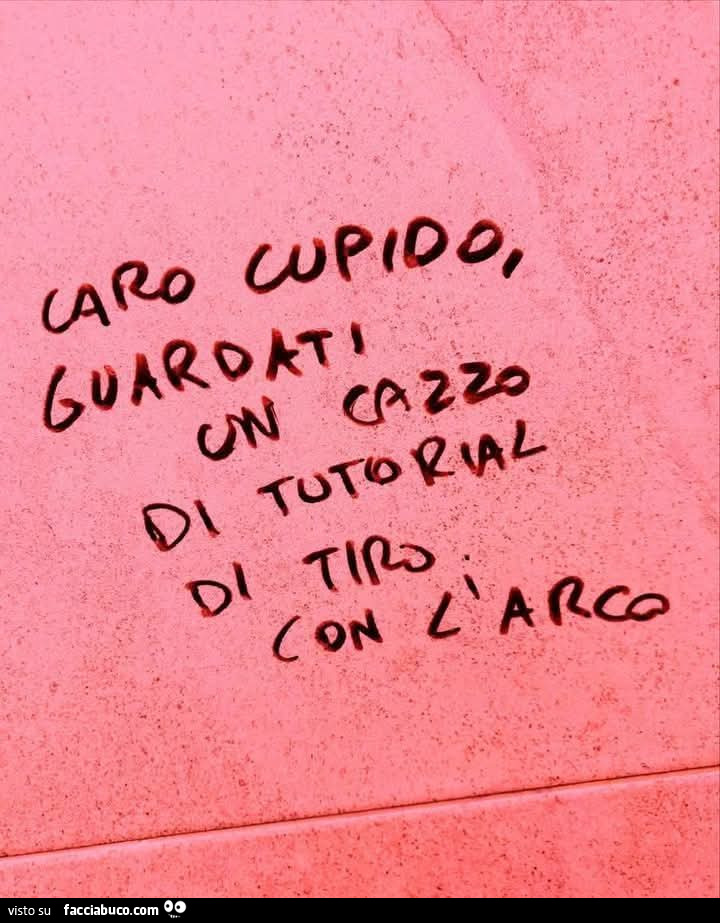 CARO CUPIDO,
GUARDATI
UN CAZZO
DI TUTORIAL
DI TIRO
CON L'ARCO
visto su facciabuco.com